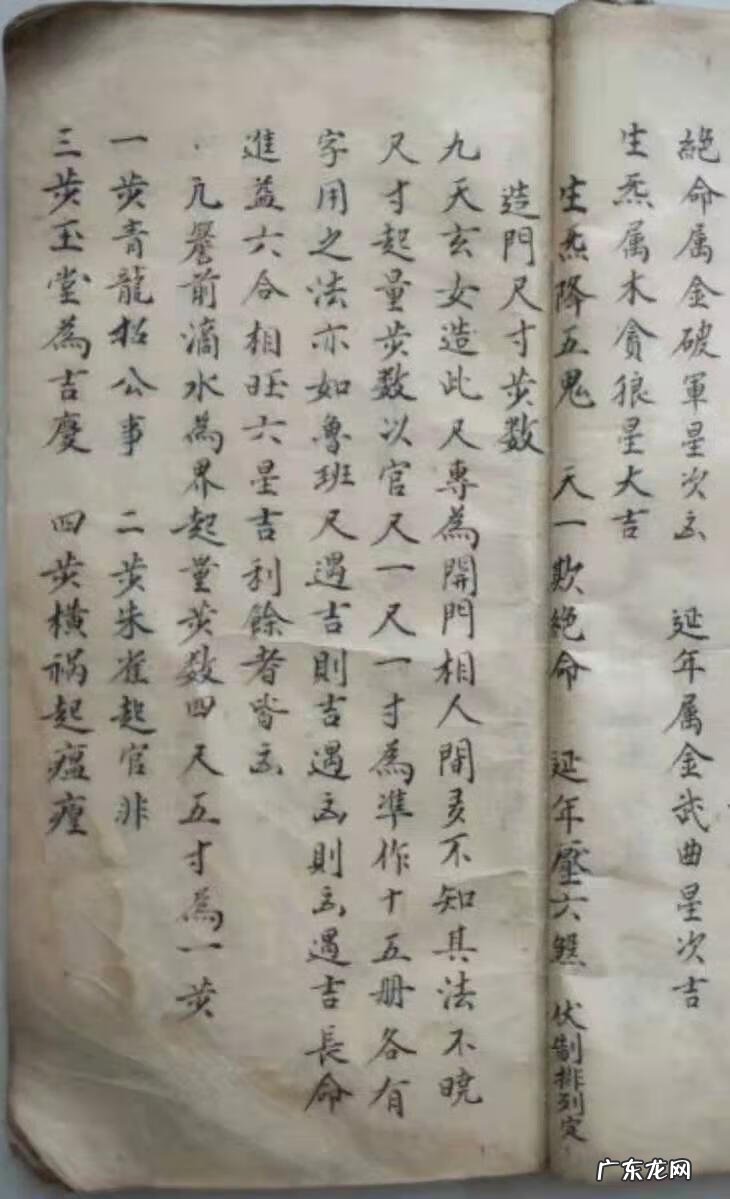 絕命属金破軍星次凶 延年属金武曲星次吉
生炁属木貪狼星大吉
生炁降五鬼 天一欺絕命 延年壓六煞 伏制排列定
造門尺寸步数
九天玄女造此尺專為開門相人間多不知其法不曉
尺寸起量步数以官尺一尺一寸為準作十五册各有
字用之法亦如魯班尺遇吉則吉遇凶則凶遇吉長命
進益六合相旺六星吉利餘者皆凶
凢簷前滴水為界起量步数四尺五寸為一步
一步青龍招公事 二步朱雀起官非
三步玉堂為吉慶 四步橫禍起瘟瘽
广东龙网